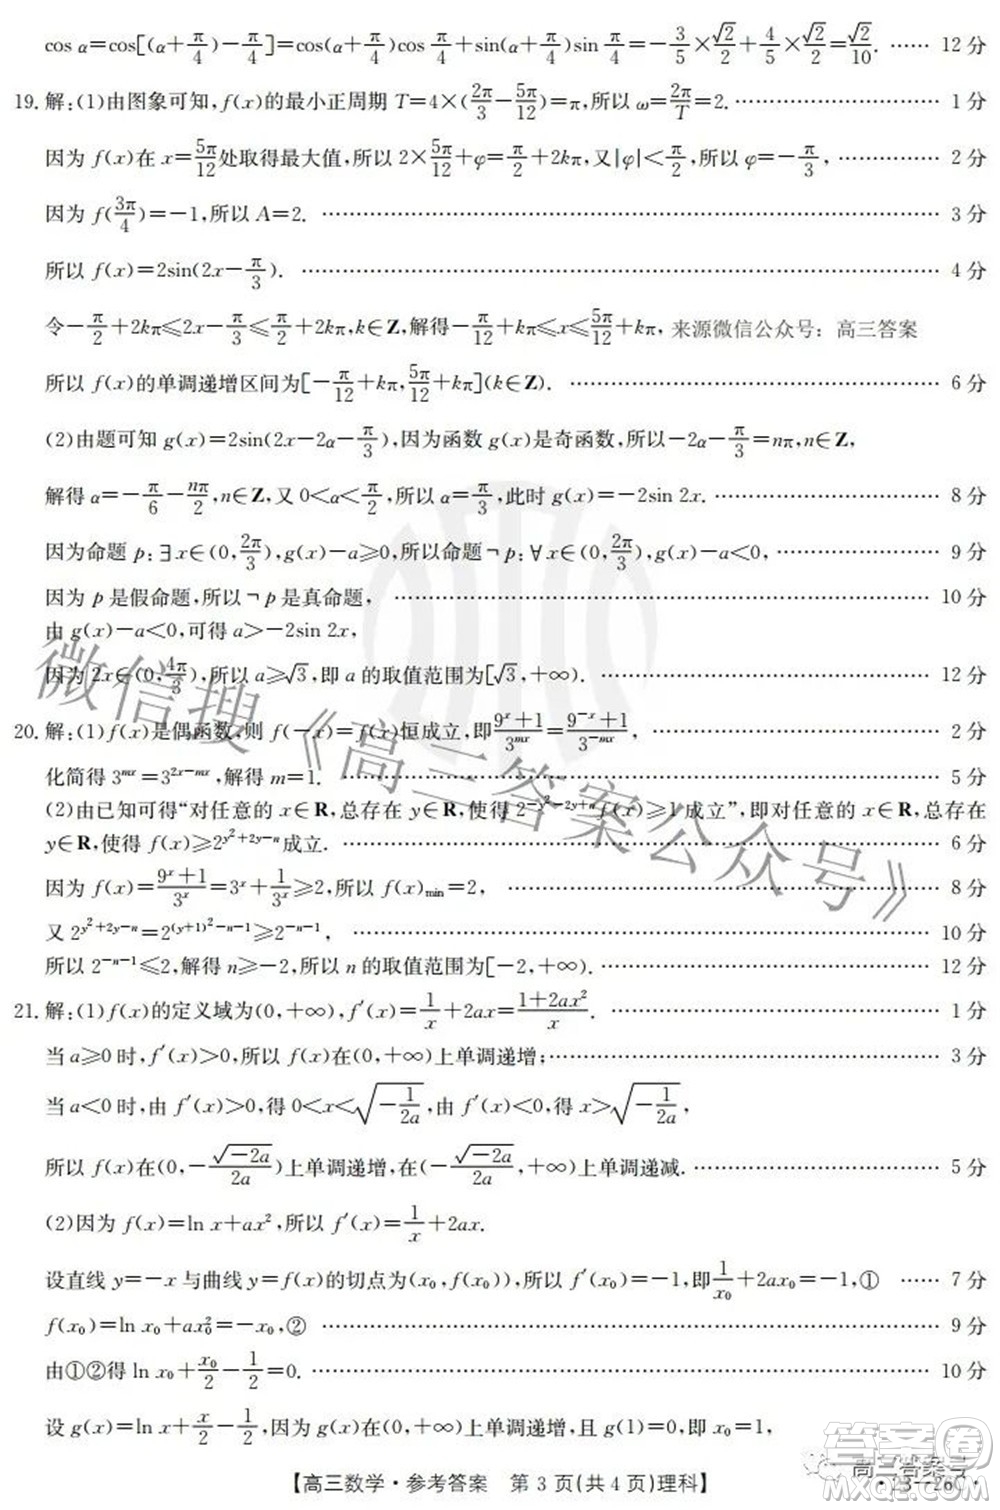 cos α=cos[(α+π/4)-π/4]=cos(α+π/4)cos π/4+sin(α+π/4)sin π/4=-3/5×√2/2+4/5×√2/2=√2/10. …… 12 分
19. 解:(1)由图象可知,f(x)的最小正周期 T=4×(2π/3-5π/12)=π,所以 ω=2π/T=2. …… 1 分
因为 f(x)在 x=5π/12处取得最大值,所以 2×5π/12+φ=π/2+2kπ,又|φ|<π/2,所以 φ=-π/3, …… 2 分
因为 f(3π/4)=-1,所以 A=2. …… 3 分
所以 f(x)=2sin(2x-π/3). …… 4 分
令-π/2+2kπ≤2x-π/3≤π/2+2kπ,k∈Z,解得-π/12+kπ≤x≤5π/12+kπ, 来源微信公众号：高三答案
所以 f(x)的单调递增区间为[-π/12+kπ,5π/12+kπ](k∈Z). …… 6 分
(2)由题可知 g(x)=2sin(2x-2α-π/3),因为函数 g(x)是奇函数,所以-2α-π/3=nπ,n∈Z,
解得 α=-π/6-nπ/2,n∈Z,又 0<α<π/2,所以 α=π/3,此时 g(x)=-2sin 2x. …… 8 分
因为命题 p:∃x∈(0,2π/3),g(x)-a≥0,所以命题¬p:∀x∈(0,2π/3),g(x)-a<0, …… 9 分
因为 p 是假命题,所以¬p 是真命题, …… 10 分
由 g(x)-a<0,可得 a>-2sin 2x,
因为 2x∈(0,4π/3),所以 a≥√3,即 a 的取值范围为[√3,+∞). …… 12 分
20. 解:(1)f(x)是偶函数,则 f(-x)=f(x)恒成立,即(9^x+1)/3^{mx}=(9^{-x}+1)/3^{-mx}, …… 2 分
化简得 3^{mx}=3^{2x-mx},解得 m=1. …… 5 分
(2)由已知可得“对任意的 x∈R,总存在 y∈R,使得 2^{-y²-2y+n}f(x)≥1 成立”,即对任意的 x∈R,总存在
y∈R,使得 f(x)≥2^{y²+2y-n}成立. …… 6 分
因为 f(x)=(9^x+1)/3^x=3^x+1/3^x≥2,所以 f(x)min=2, …… 8 分
又 2^{y²+2y-n}=2^{(y+1)²-n-1}≥2^{-n-1}, …… 10 分
所以 2^{-n-1}≤2,解得 n≥-2,所以 n 的取值范围为[-2,+∞). …… 12 分
21. 解:(1)f(x)的定义域为(0,+∞),f′(x)=1/x+2ax=(1+2ax²)/x. …… 1 分
当 a≥0 时,f′(x)>0,所以 f(x)在(0,+∞)上单调递增; …… 3 分
当 a<0 时,由 f′(x)>0,得 0<x<√(-1/2a),由 f′(x)<0,得 x>√(-1/2a),
所以 f(x)在(0,-√(-2a)/2a)上单调递增,在(-√(-2a)/2a,+∞)上单调递减. …… 5 分
(2)因为 f(x)=ln x+ax²,所以 f′(x)=1/x+2ax.
设直线 y=-x 与曲线 y=f(x)的切点为(x₀,f(x₀)),所以 f′(x₀)=-1,即1/x₀+2ax₀=-1,① …… 7 分
f(x₀)=ln x₀+ax₀²=-x₀,② …… 9 分
由①②得 ln x₀+x₀/2-1/2=0. …… 10 分
设 g(x)=ln x+x/2-1/2,因为 g(x)在(0,+∞)上单调递增,且 g(1)=0,即 x₀=1,
【高三数学·参考答案 第 3 页(共 4 页)理科】
·23-26C·
高三答案号
微信搜《高三答案公众号》